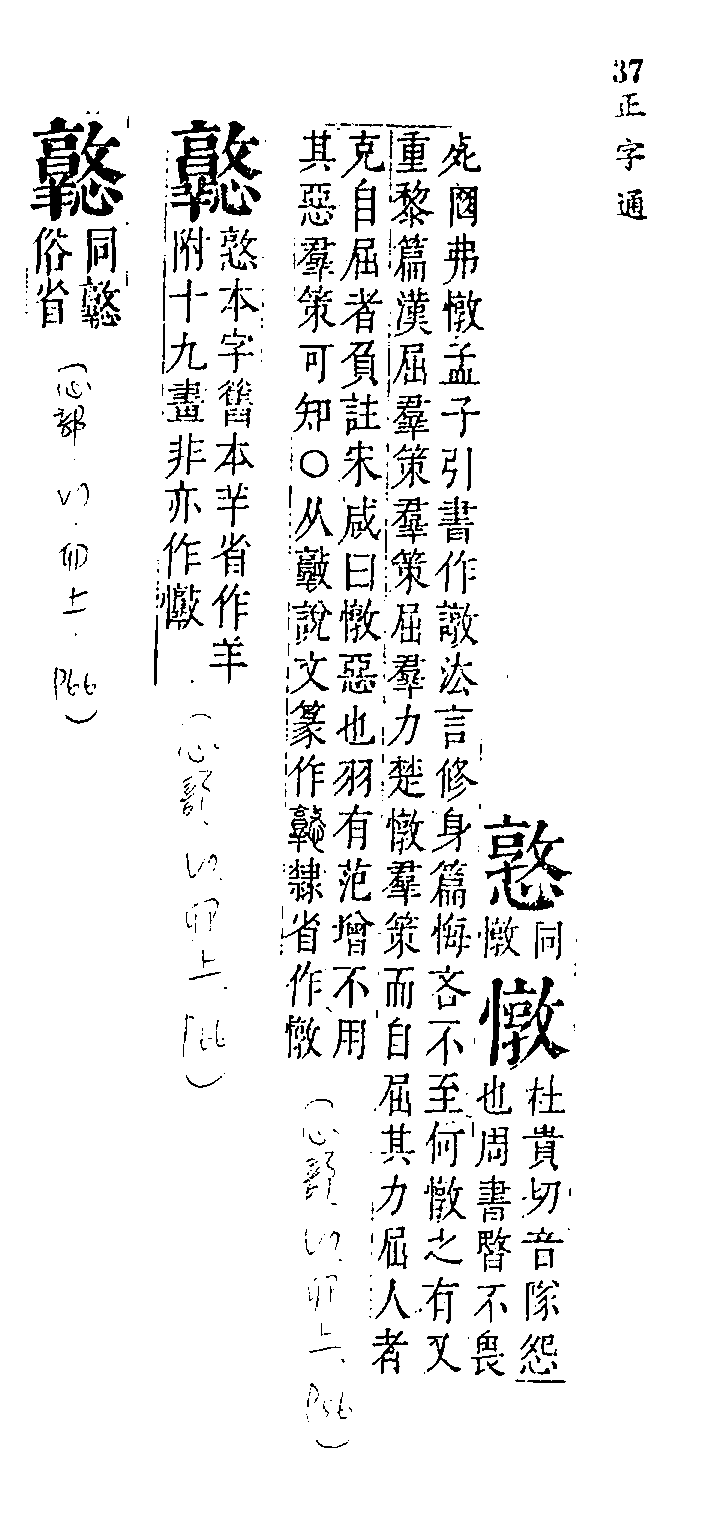 37
正字通
憝同憞
憞杜貴切音隊怨
也周書暋不畏
死罔弗憞孟子引書作譈法言修身篇悔吝不至何憞之有又
重黎篇漢屈羣策羣策屈羣力楚憞羣策而自屈其力屈人者
克自屈者負註宋咸曰憞惡也羽有范增不用
其惡羣策可知○从𢿌說文篆作𢤍隸省作憞
(心部
卯上
P56)
憝本字舊本羊省作羊
附十九畫非亦作
(心部
卯上
P66)
同
俗省
(心部
卯上
P66)